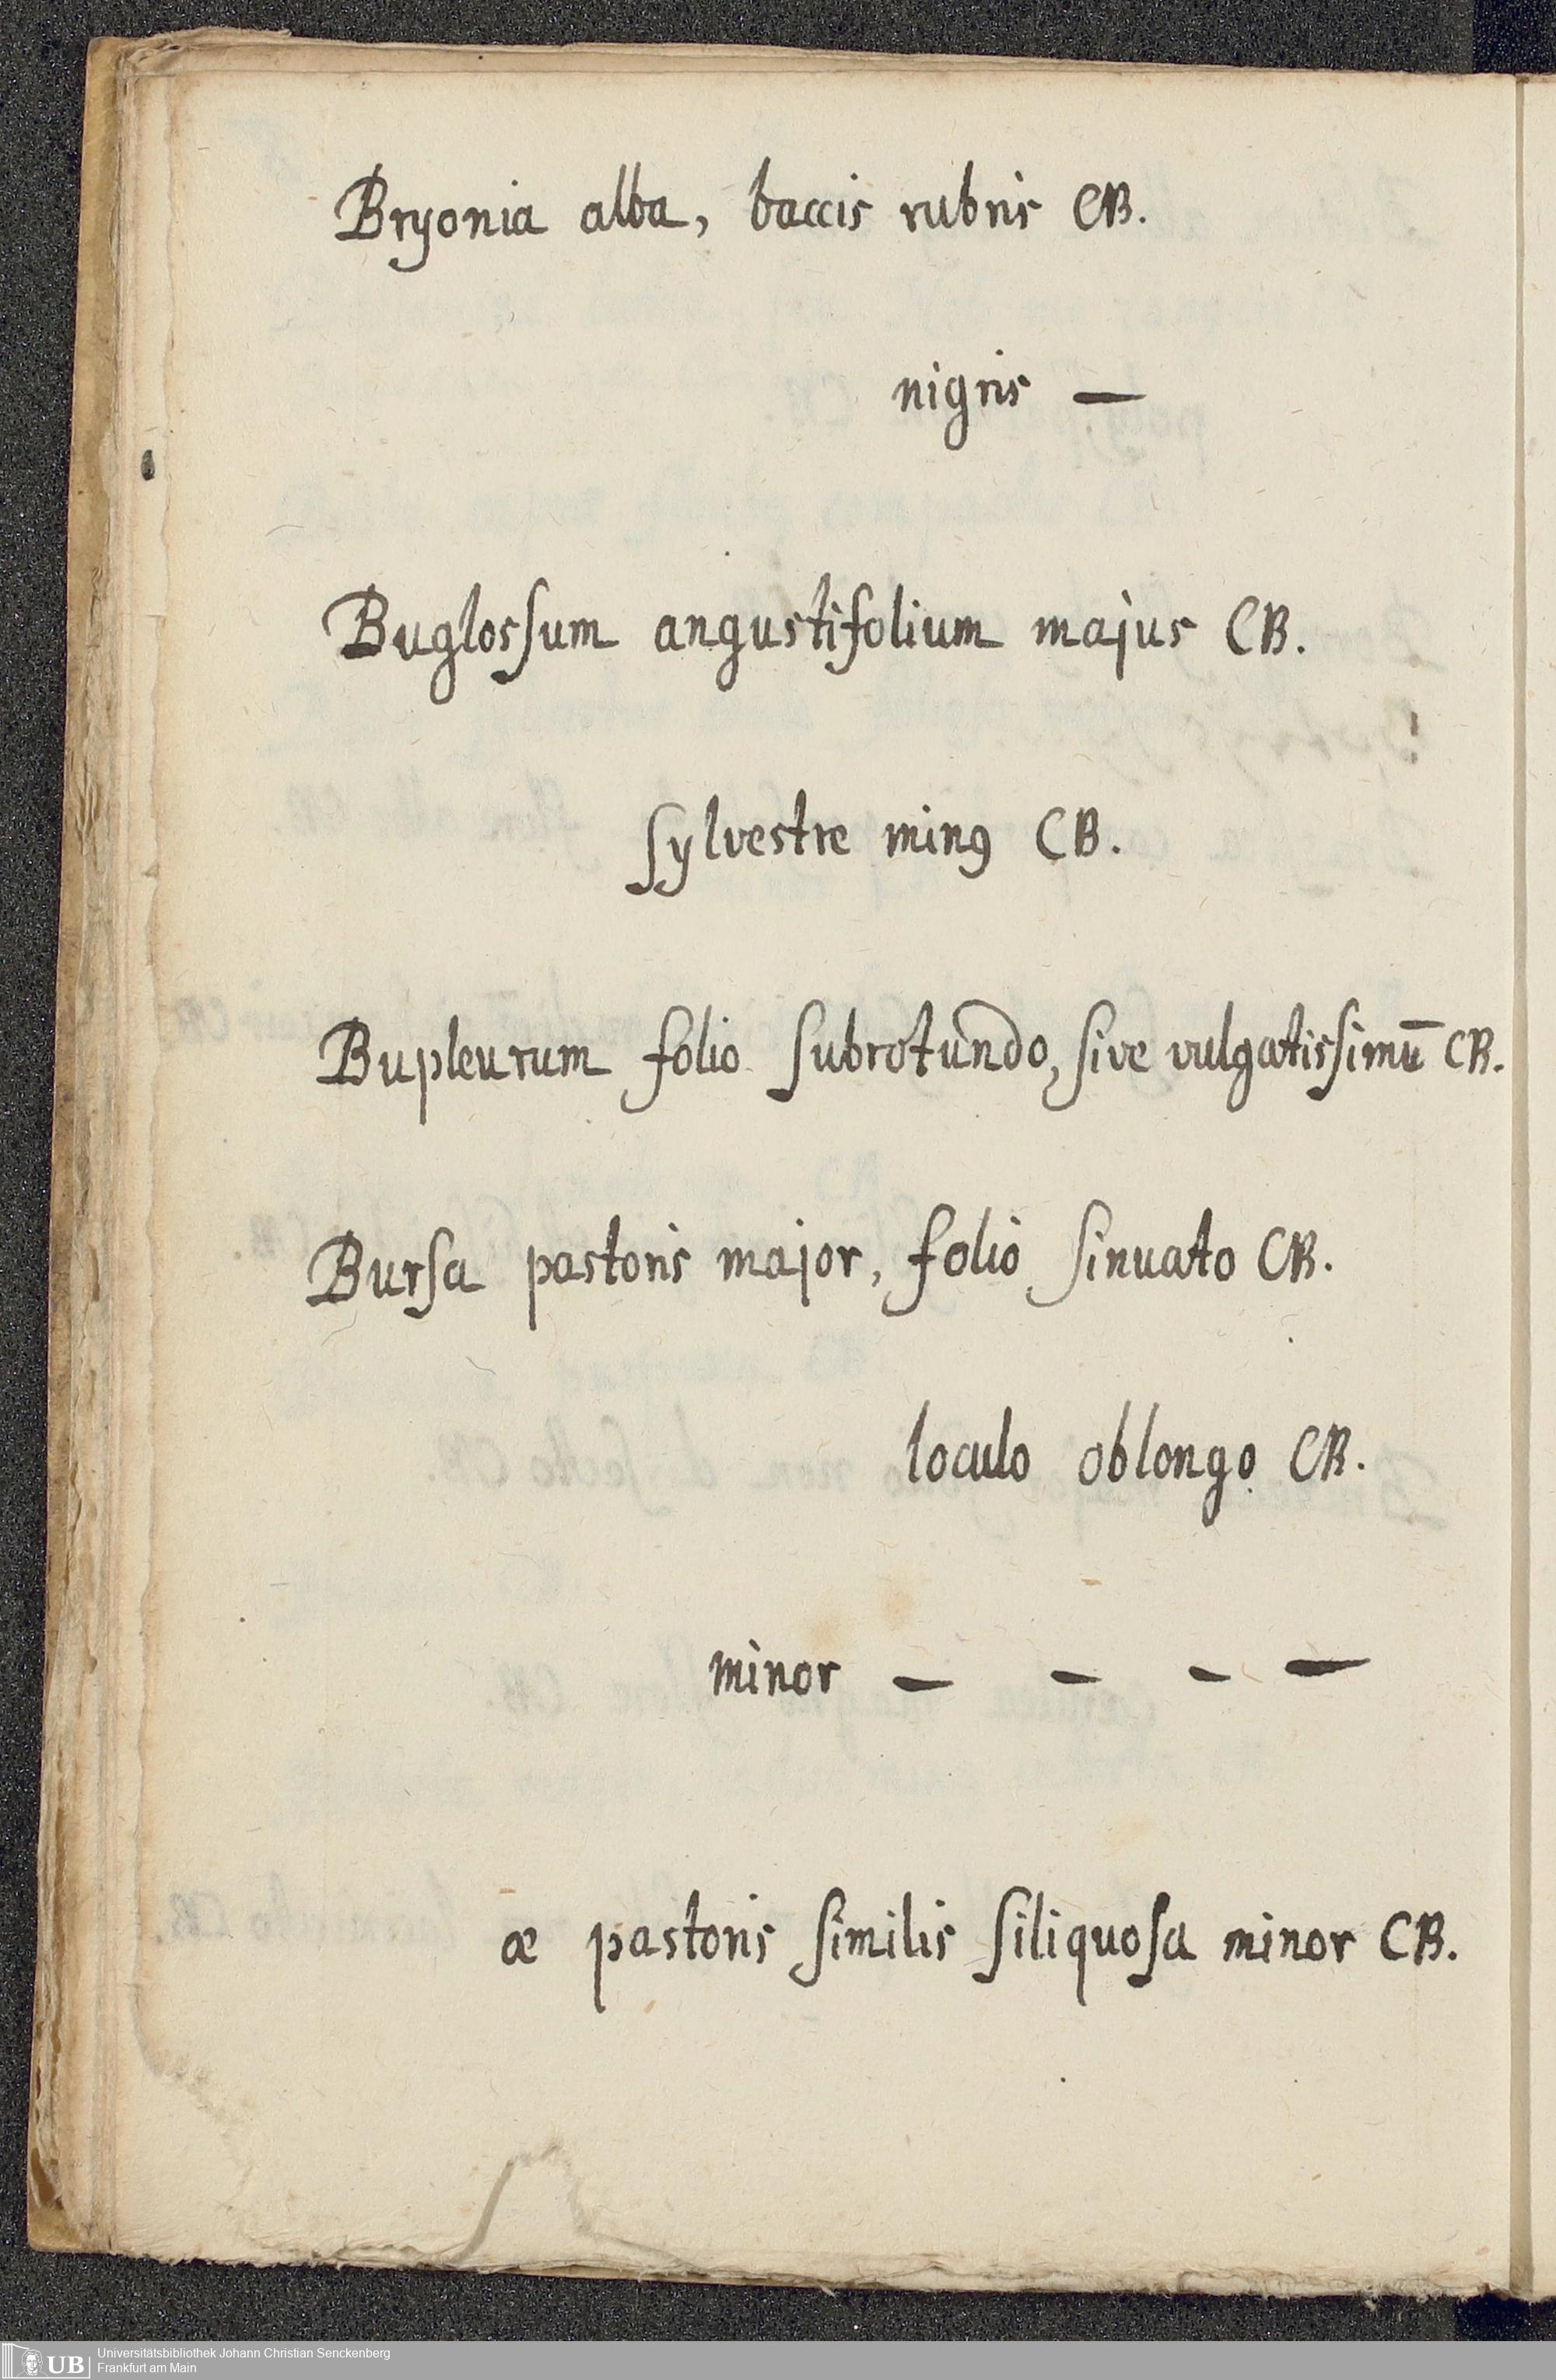 Bryonia alba, baccis rubris CB.
nigris —
Buglosſum angustifolium majus CB.
ſylvestre minꝰ CB.
Bupleurum folio ſubrotundo, ſive vulgatisſimū CB.
Burſa pastoris major, folio ſinuato CB.
loculo oblongo CB.
minor — — — —
æ pastoris ſimilis ſiliquoſa minor CB.
UB Universitätsbibliothek Johann Christian Senckenberg
Frankfurt am Main